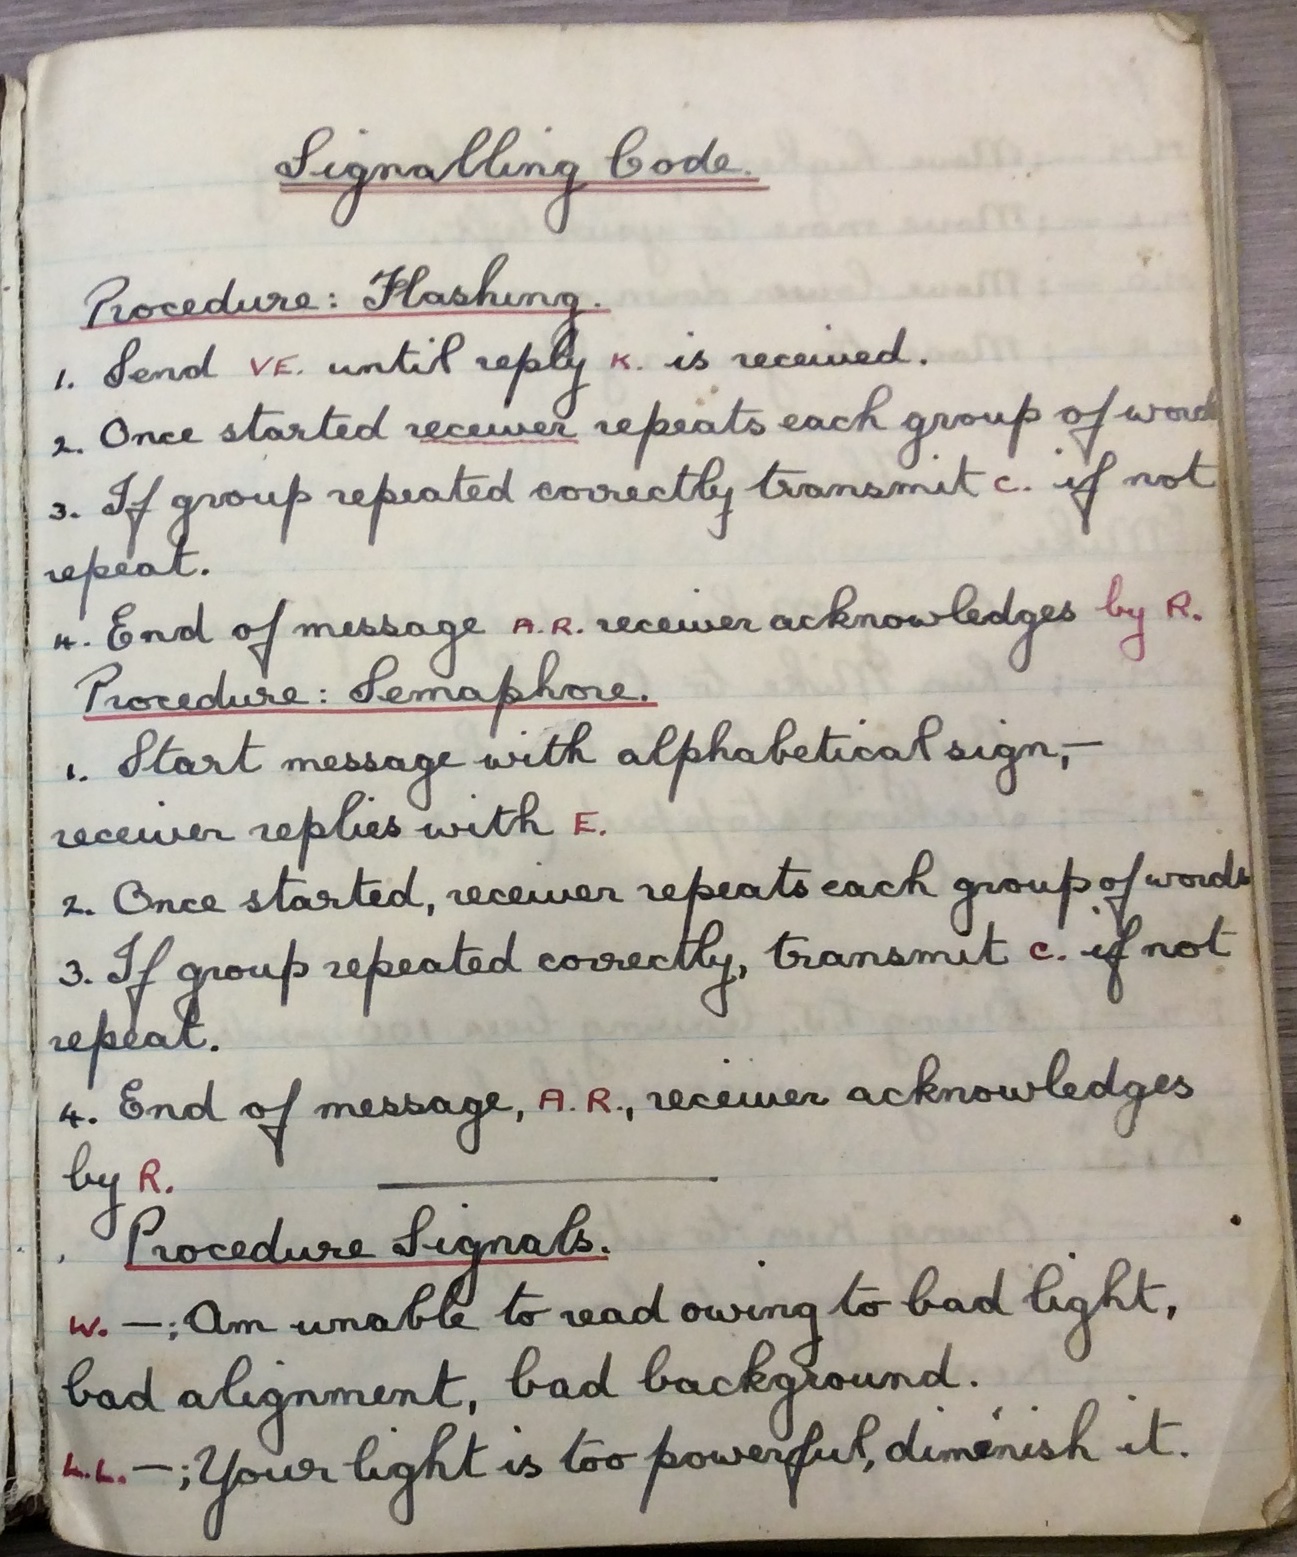 Signalling Code.
Procedure: Flashing.
1. Send VE. until reply K. is received.
2. Once started receiver repeats each group of word
3. If group repeated correctly transmit C. if not
repeat.
4. End of message A.R. receiver acknowledges by R.
Procedure: Semaphore.
1. Start message with alphabetical sign,—
receiver replies with E.
2. Once started, receiver repeats each group of words
3. If group repeated correctly, transmit C. if not
repeat.
4. End of message, A.R., receiver acknowledges
by R.
Procedure Signals.
W. —; Am unable to read owing to bad light,
bad alignment, bad background.
L.L. —; Your light is too powerful, diminish it.